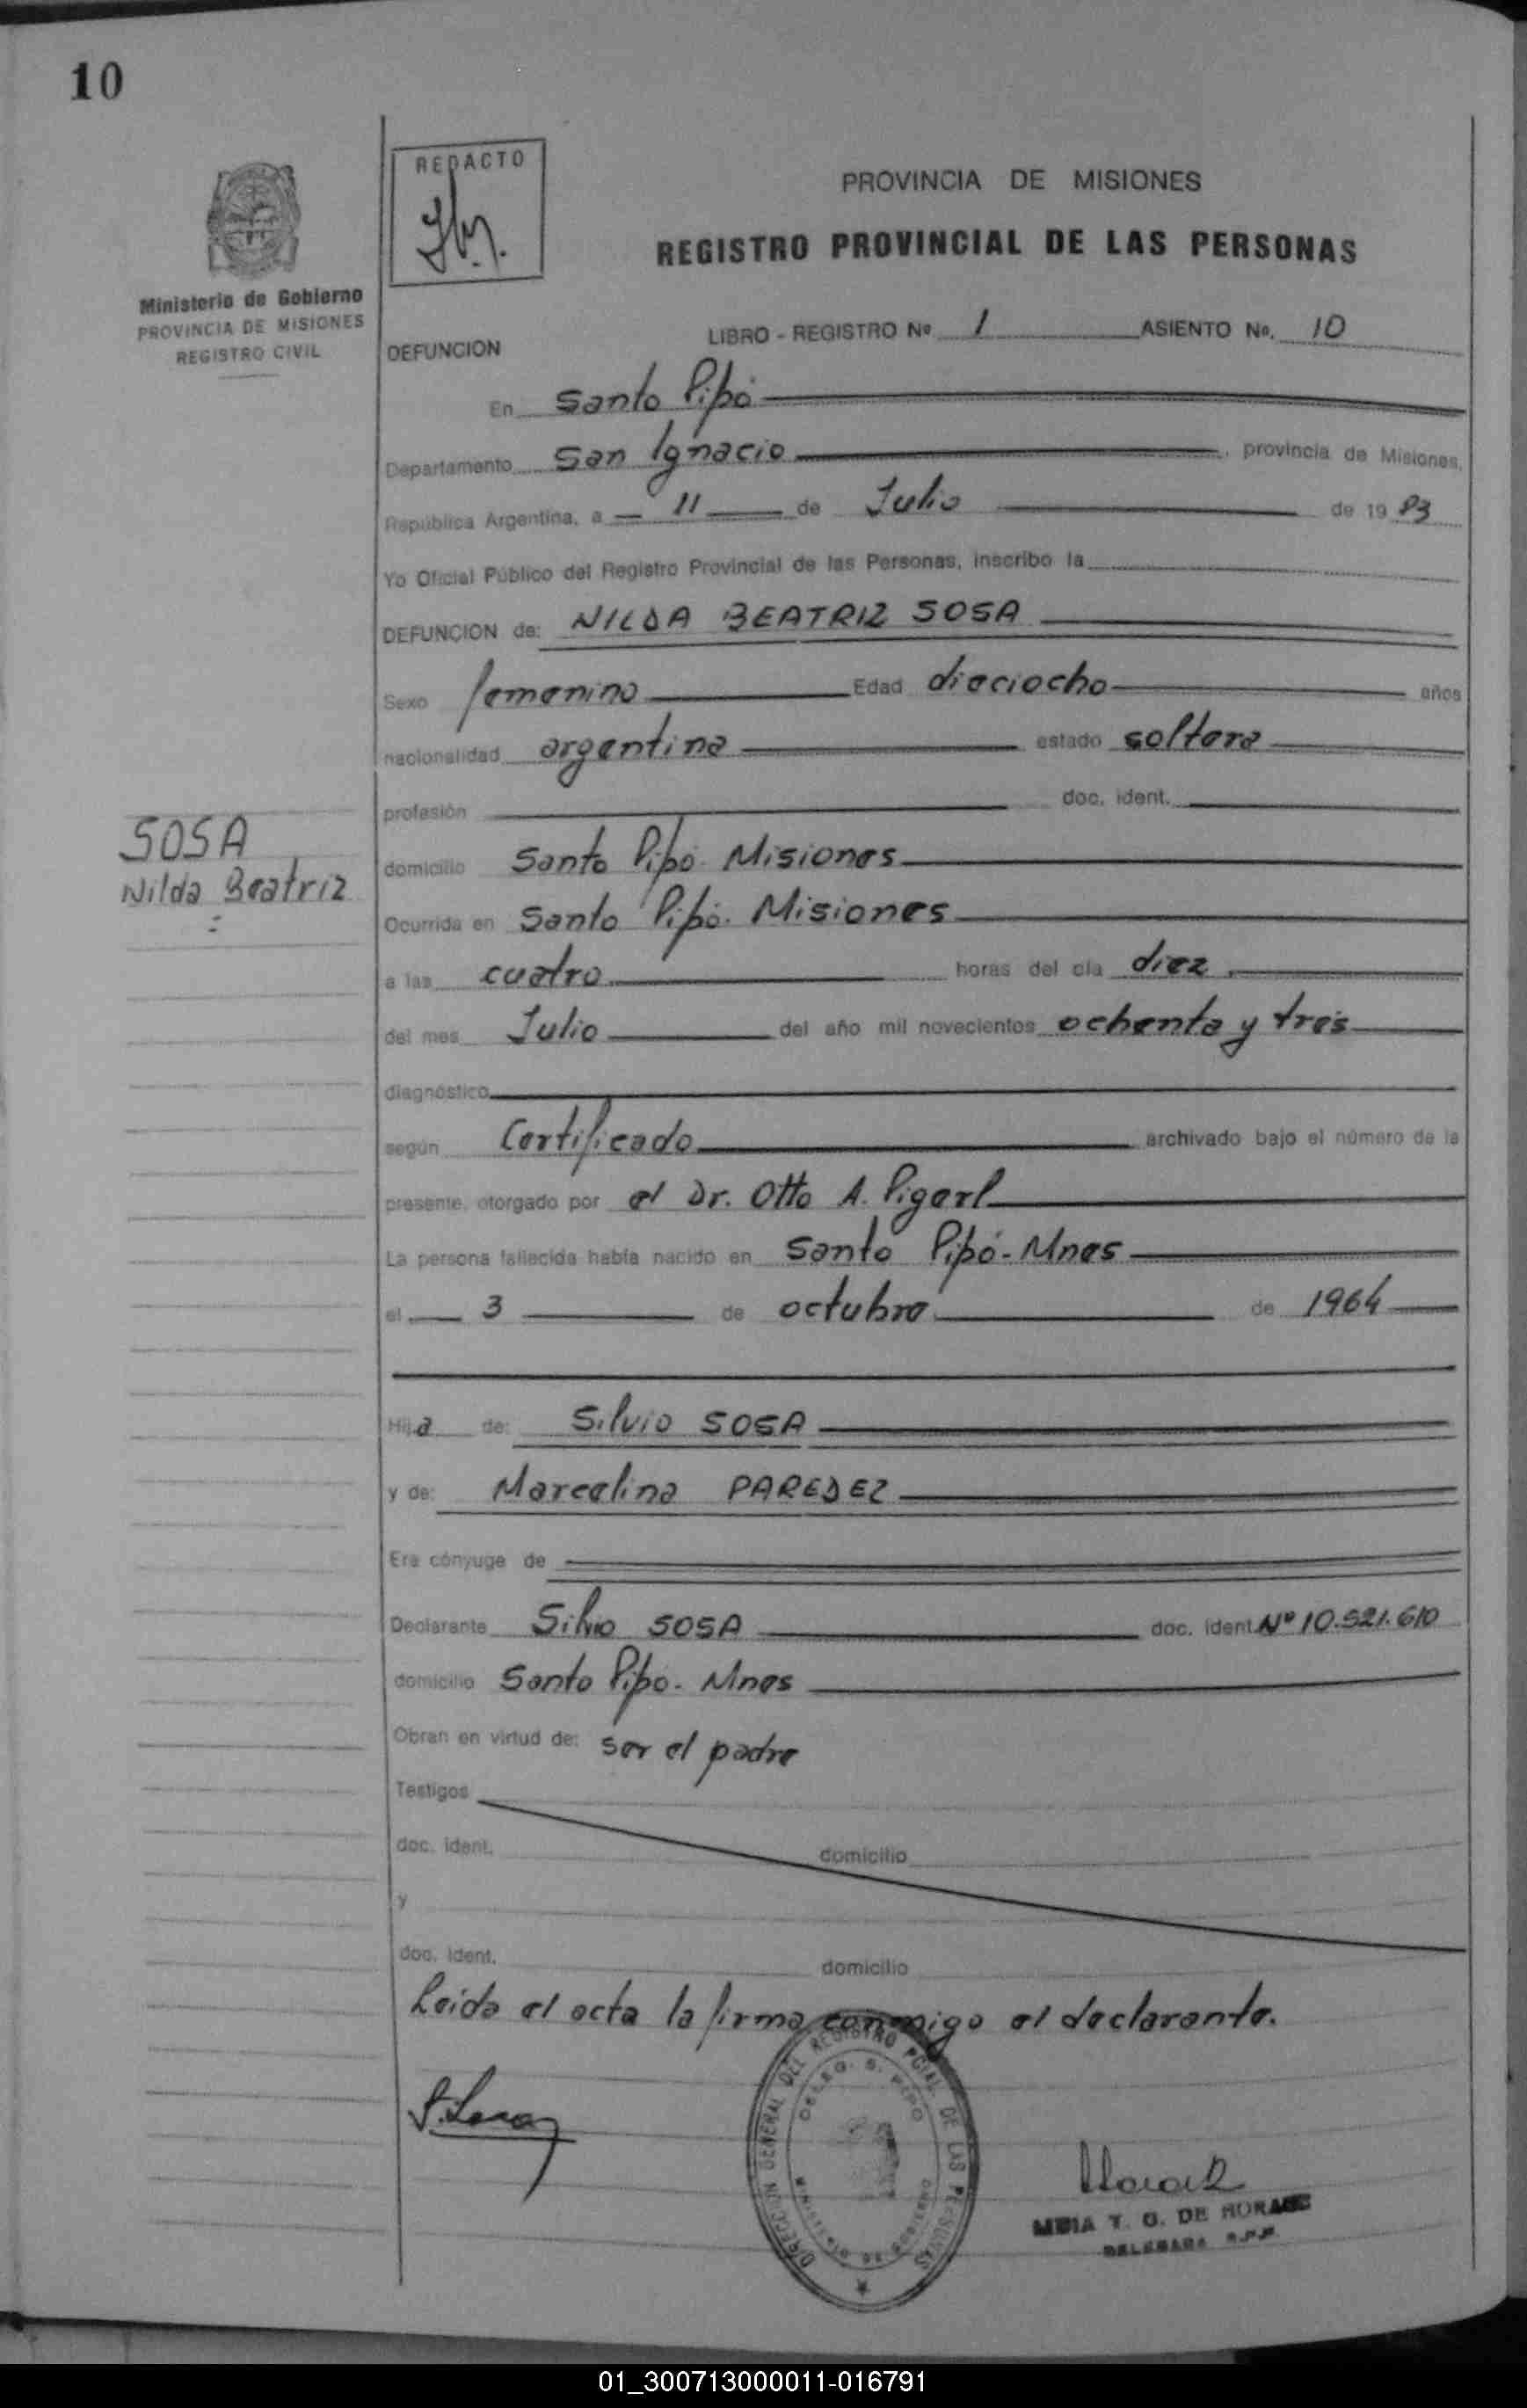 10
REDACTO
PROVINCIA DE MISIONES
REGISTRO PROVINCIAL DE LAS PERSONAS
Ministerio de Gobierno
PROVINCIA DE MISIONES
REGISTRO CIVIL
LIBRO - REGISTRO No 1 ASIENTO No. 10
DEFUNCION
En Santo Pipó
Departamento San Ignacio, provincia de Misiones,
República Argentina, a 11 de Julio de 1983
Yo Oficial Público del Registro Provincial de las Personas, inscribo la
DEFUNCION de: NILDA BEATRIZ SOSA
Sexo femenino Edad dieciocho años
nacionalidad argentina estado soltera
profesión doc. ident.
SOSA
Nilda Beatriz
domicilio Santo Pipó. Misiones
Ocurrida en Santo Pipó. Misiones
a las cuatro horas del día diez
del mes Julio del año mil novecientos ochenta y tres
diagnóstico
según Certificado archivado bajo el número de la
presente, otorgado por el Dr. Otto A. Pigerl
La persona fallecida había nacido en Santo Pipó - Mnes
el 3 de octubre de 1964
Hija de: Silvio SOSA
y de: Marcelina PAREDEZ
Era cónyuge de
Declarante Silvio SOSA doc. ident. Nº 10.521.610
domicilio Santo Pipó - Mnes
Obran en virtud de: ser el padre
Testigos
doc. ident. domicilio
y
doc. ident. domicilio
Leida el acta la firma conmigo el declarante.
DIRECCION GENERAL DEL REGISTRO PCIAL. DE LAS PERSONAS
DELEG. S. PIPO
T. G. DE MORALES
DELEGADA R.P.P.
01_300713000011-016791